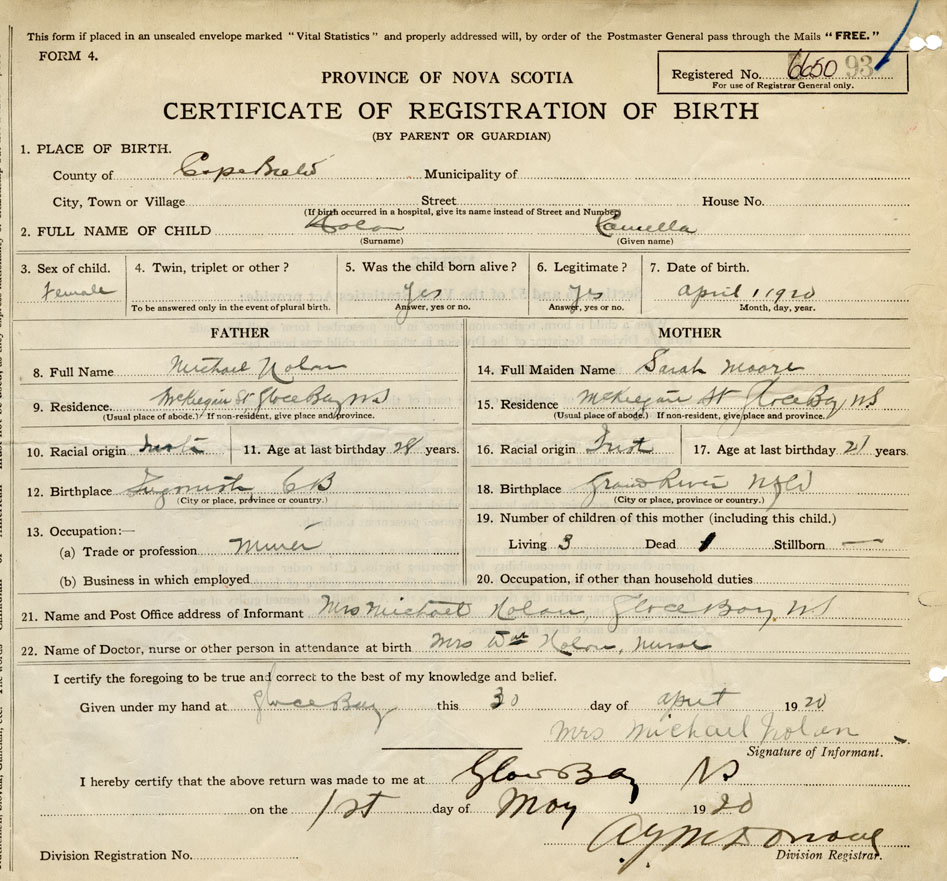 This form if placed in an unsealed envelope marked "Vital Statistics" and properly addressed will, by order of the Postmaster General pass through the Mails "FREE."
FORM 4.
PROVINCE OF NOVA SCOTIA
Registered No. 6650 93
For use of Registrar General only.
CERTIFICATE OF REGISTRATION OF BIRTH
(BY PARENT OR GUARDIAN)
1. PLACE OF BIRTH.
County of Cape Breton Municipality of
City, Town or Village Street House No.
(If birth occurred in a hospital, give its name instead of Street and Number)
2. FULL NAME OF CHILD Nolan Camella
(Surname) (Given name)
3. Sex of child. 4. Twin, triplet or other? 5. Was the child born alive? 6. Legitimate? 7. Date of birth.
Female Yes Yes April 1 1920
To be answered only in the event of plural birth. Answer, yes or no. Answer, yes or no. Month, day, year.
FATHER MOTHER
8. Full Name Michael Nolan 14. Full Maiden Name Sarah Moore
9. Residence. McKeigan St Glace Bay NS 15. Residence McKeigan St Glace Bay NS
(Usual place of abode.) If non-resident, give place and province. (Usual place of abode.) If non-resident, give place and province.
10. Racial origin 11. Age at last birthday 28 years. 16. Racial origin 17. Age at last birthday 21 years.
12. Birthplace Ingonish CB 18. Birthplace Grand River Nfld
(City or place, province or country.) (City or place, province or country.)
13. Occupation:— 19. Number of children of this mother (including this child.)
(a) Trade or profession Miner Living 3 Dead 1 Stillborn —
(b) Business in which employed 20. Occupation, if other than household duties
21. Name and Post Office address of Informant Mrs Michael Nolan, Glace Bay, NS
22. Name of Doctor, nurse or other person in attendance at birth Mrs Wm Nolan, nurse
I certify the foregoing to be true and correct to the best of my knowledge and belief.
Given under my hand at Glace Bay this 30 day of April 1920
Mrs Michael Nolan
Signature of Informant.
I hereby certify that the above return was made to me at Glace Bay NS
on the 1st day of May 1920
Division Registration No. Division Registrar.